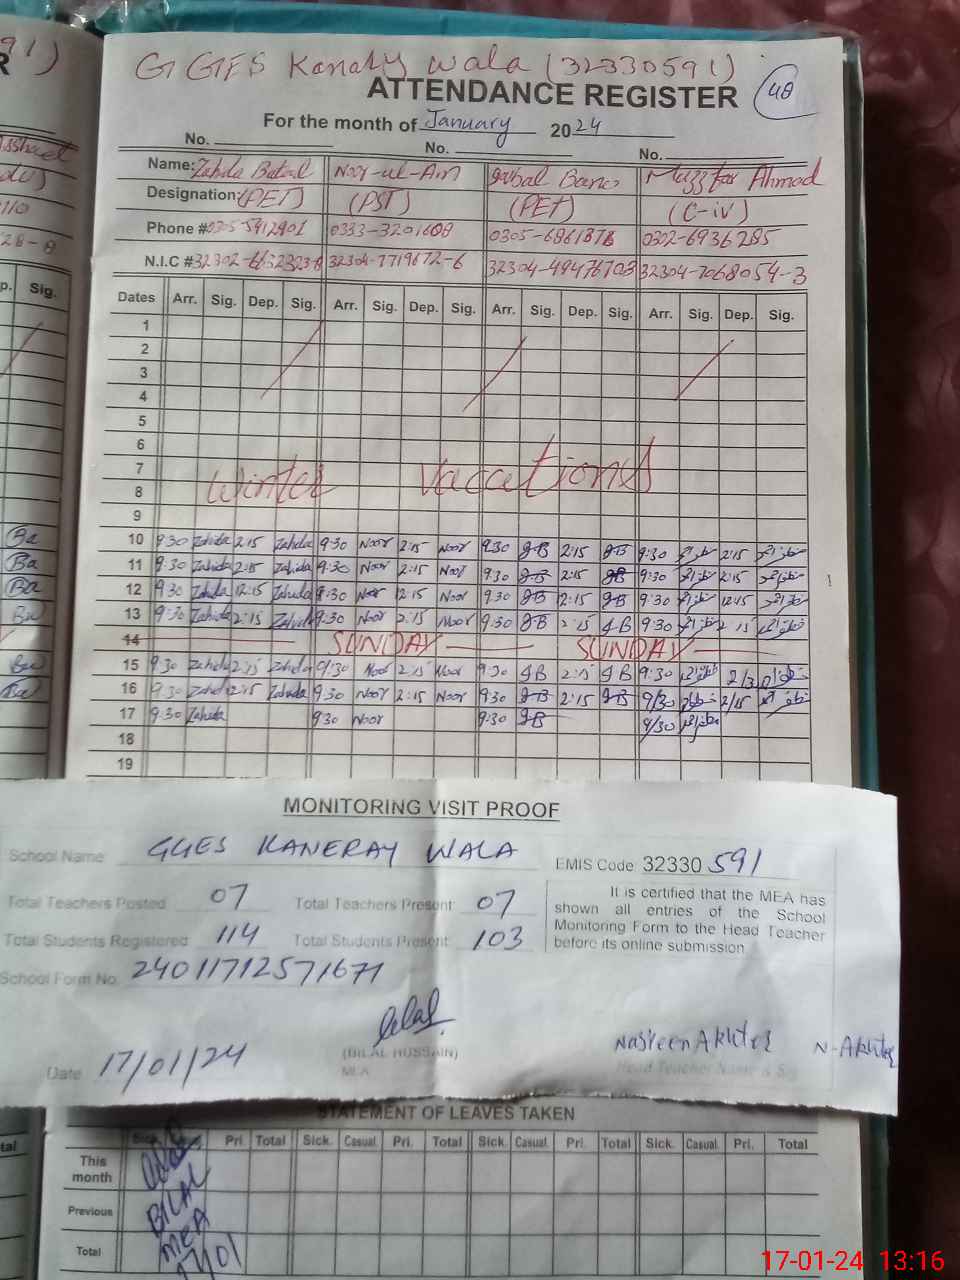 GGES Kanary Wala (32330591)
ATTENDANCE REGISTER
48
For the month of January 2024
No. No. No.
Name: Zahida Batool Noor-ul-Ain Iqbal Bano Muzzfar Ahmad
Designation: (PET) (PST) (PET) (C-iv)
Phone # 0305-5912901 0333-3201608 0305-6861878 0302-6936285
N.I.C # 32304-7719672-6 32304-7068054-3
Dates Arr. Sig. Dep. Sig. Arr. Sig. Dep. Sig. Arr. Sig. Dep. Sig. Arr. Sig. Dep. Sig.
1
2
3
4
5
6
7
Winter Vacations
8
9
10 9:30 Zahida 2:15 Zahida 9:30 Noor 2:15 Noor 9:30 JB 2:15 JB 9:30 2:15
11 9:30 Zahida 2:15 Zahida 9:30 Noor 2:15 Noor 9:30 JB 2:15 JB 9:30 2:15
12 9:30 Zahida 12:15 Zahida 9:30 Noor 12:15 Noor 9:30 JB 12:15 JB 9:30 12:15
13 9:30 Zahida 2:15 Zahida 9:30 Noor 2:15 Noor 9:30 JB 2:15 JB 9:30 2:15
14 SUNDAY SUNDAY
15 9:30 Zahida 2:15 Zahida 9:30 Noor 2:15 Noor 9:30 JB 2:15 JB 9:30
16 9:30 Zahida 2:15 Zahida 9:30 Noor 2:15 Noor 9:30 JB 2:15 JB 9/30 2/15
17 9:30 Zahida 9:30 Noor 9:30 JB 9/30
18
19
MONITORING VISIT PROOF
School Name GGES KANERAY WALA EMIS Code 32330 591
Total Teachers Posted 07 Total Teachers Present 07
Total Students Registered 114 Total Students Present 103
It is certified that the MEA has
shown all entries of the School
Monitoring Form to the Head Teacher
before its online submission.
School Form No. 24011712571671
Bilal
(BILAL HUSSAIN)
MEA
Nasreen Akhter N-Akhter
Head Teacher Name & Sig
Date 17/01/24
STATEMENT OF LEAVES TAKEN
Sick. Pri. Total Sick. Casual. Pri. Total Sick. Casual. Pri. Total Sick. Casual. Pri. Total
This
month
Previous
Total
BILAL
MEA
17/01
17-01-24 13:16